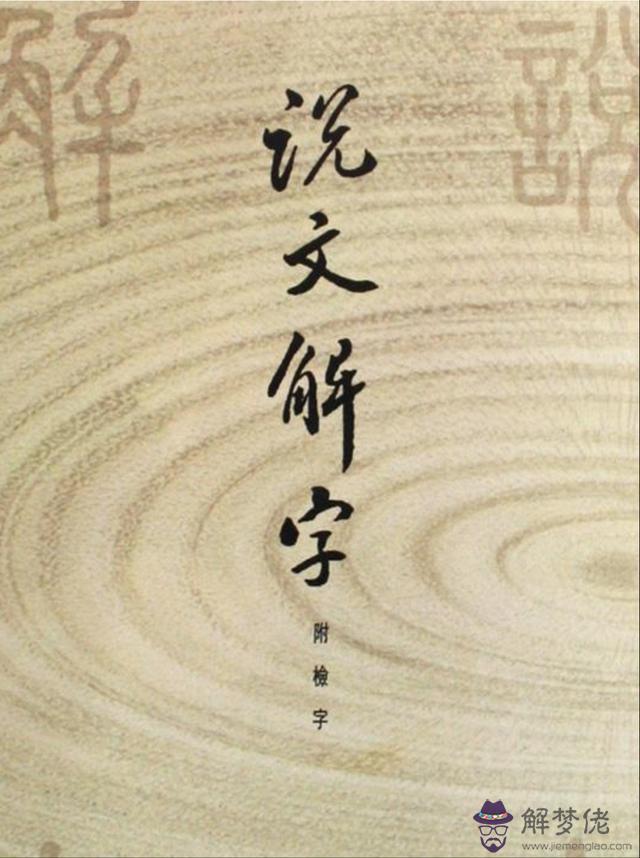 解
說
说文解字
附檢字
解梦佬
www.jiemenglao.com